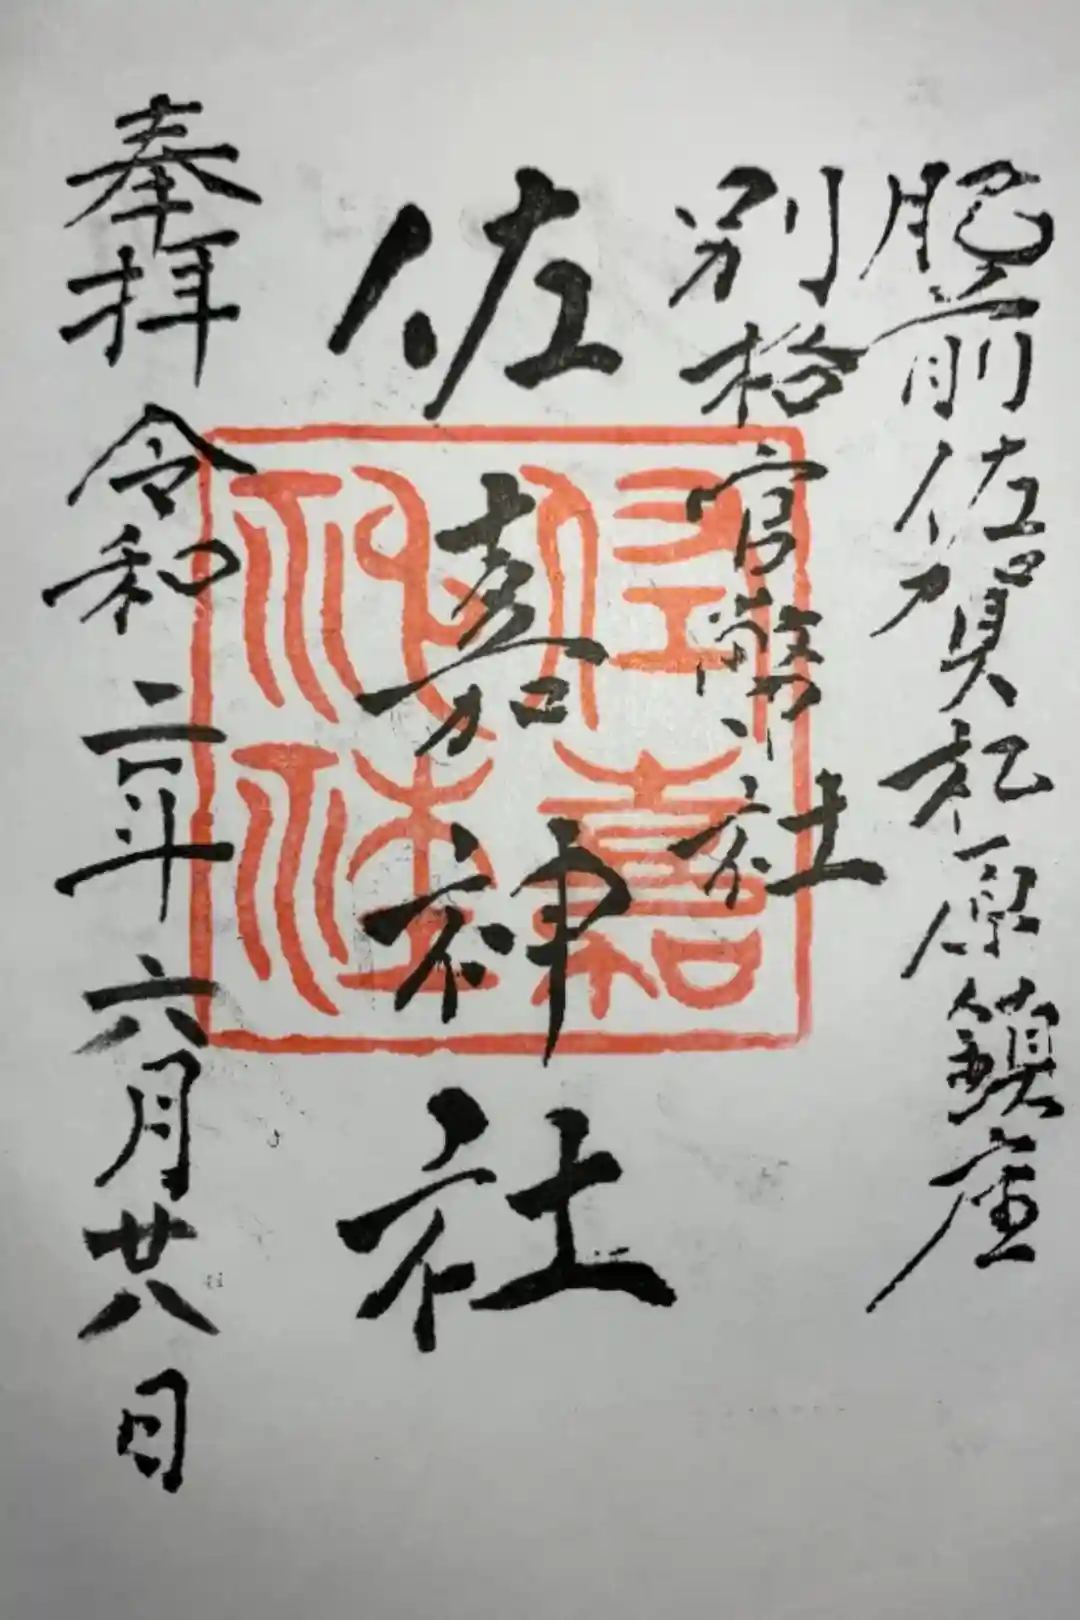 肥前佐賀松原鎮座
別格官幣社
佐嘉神社
奉拝 令和二年六月廿八日
佐嘉神社